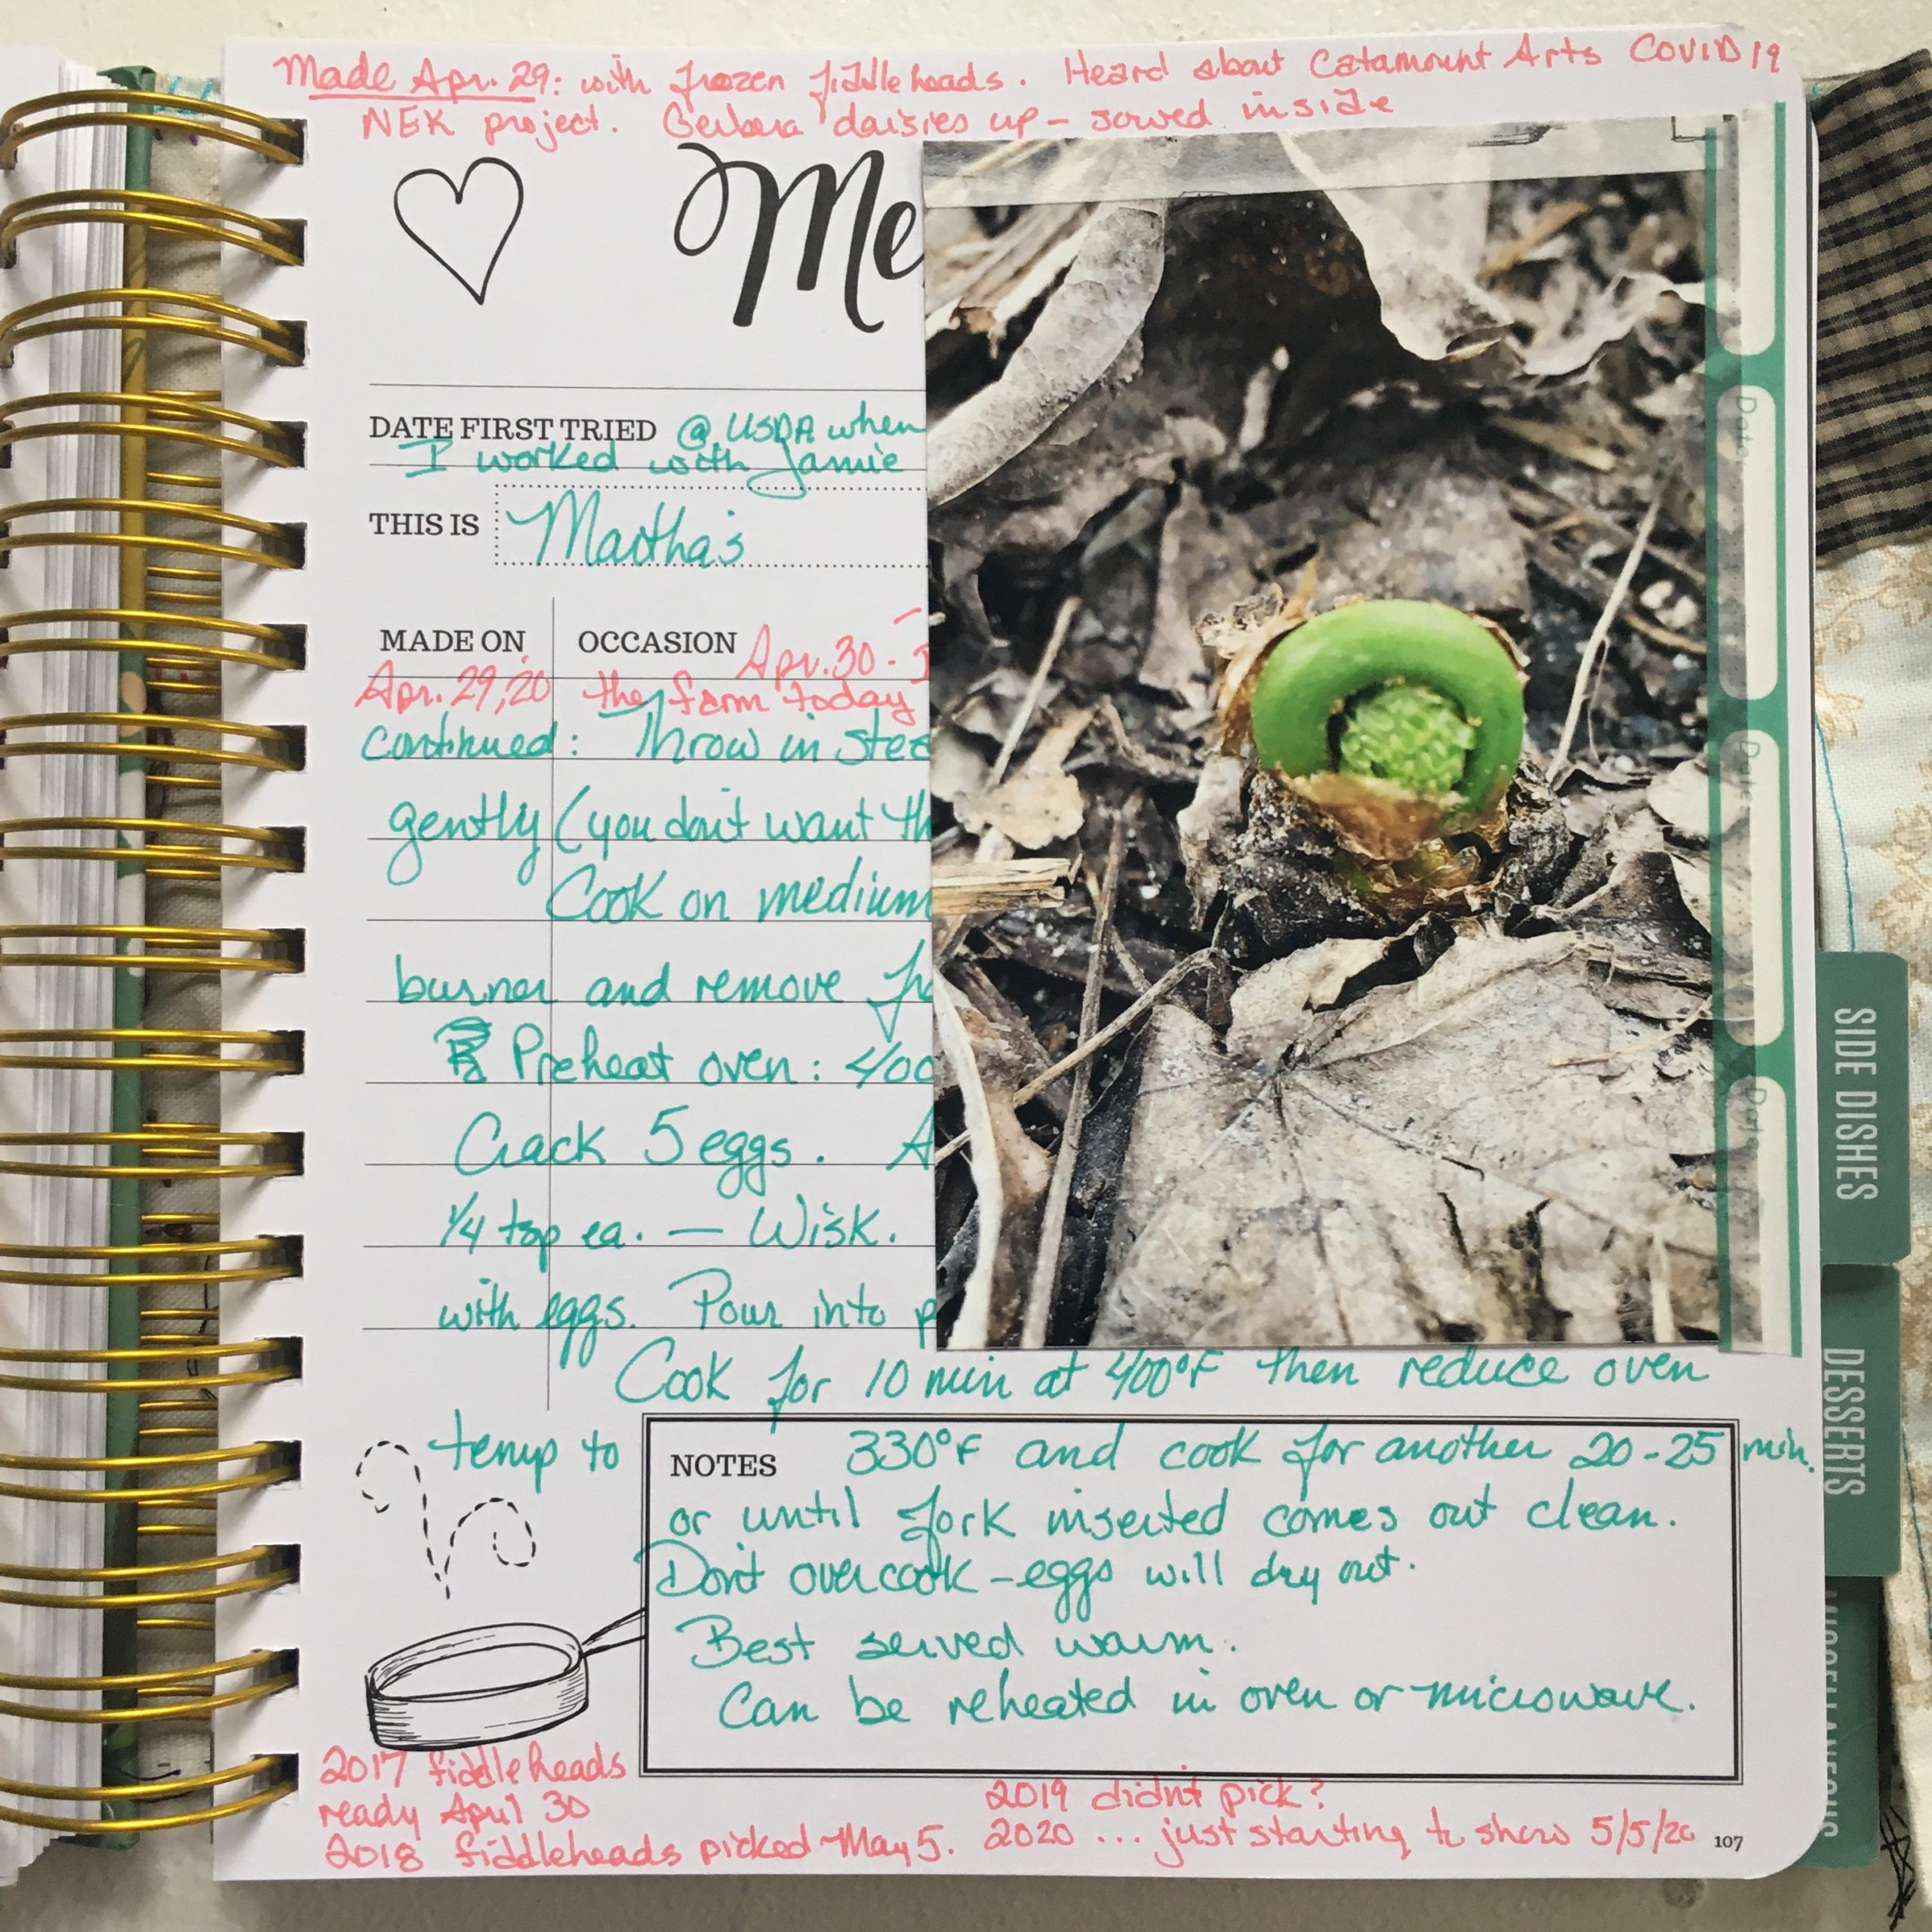 Made Apr. 29: with frozen fiddleheads. Heard about Catamount Arts COVID19
NEK project. Gerbera daisies up - sowed inside
Me
DATE FIRST TRIED @ USDA when
I worked with Jamie
THIS IS Martha's
MADE ON OCCASION Apr. 30 -
Apr. 29, 20 the farm today
continued: Throw in
gently (you don't want
Cook on medium
burner and remove
Preheat oven: 400
Crack 5 eggs. A
1/4 tsp ea. — Wisk.
with eggs. Pour into p
Cook for 10 min at 400°F then reduce oven
temp to
NOTES 330°F and cook for another 20-25 min.
or until fork inserted comes out clean.
Don't overcook - eggs will dry out.
Best served warm.
Can be reheated in oven or microwave.
2017 fiddleheads
ready April 30
2018 fiddleheads picked May 5.
2019 didn't pick?
2020 ... just starting to show 5/5/20
107
Date
Date
Date
SIDE DISHES
DESSERTS
MISCELLANEOUS